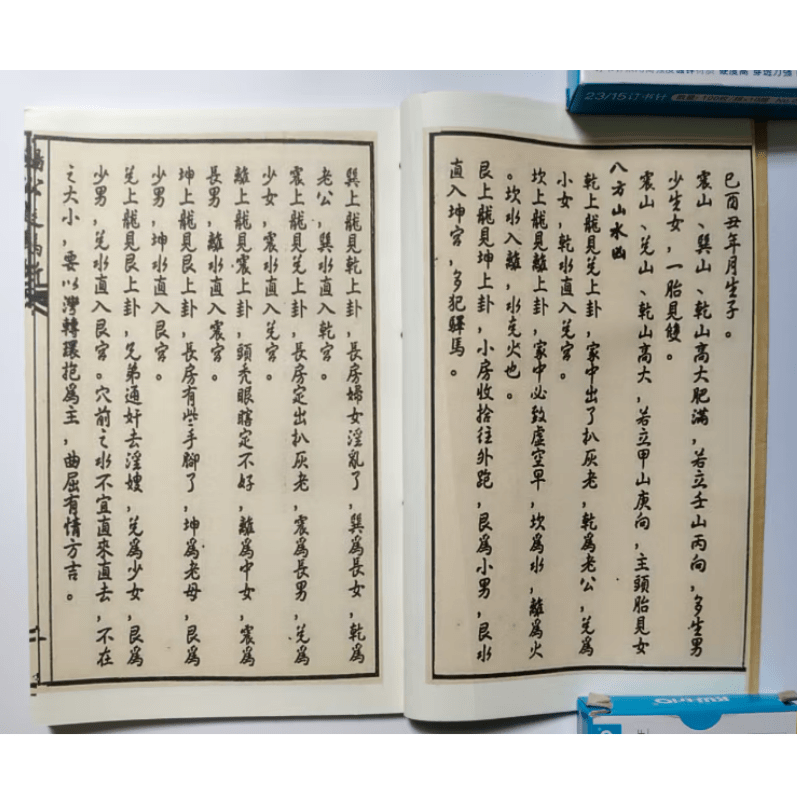 巳酉丑年月生子。
震山、巽山、乾山高大肥滿,若立壬山丙向,多生男
少生女,一胎見雙。
震山、兑山、乾山高大,若立甲山庚向,主頭胎見女
八方山水凶
乾上龍見兑上卦,家中出了扒灰老,乾爲老公,兑爲
小女,乾水直入兑宫。
坎上龍見離上卦,家中必致虚空早,坎爲水,離爲火
。坎水入離,水克火也。
艮上龍見坤上卦,小房收捨往外跑,艮爲小男,艮水
直入坤宫,多犯驛馬。
巽上龍見乾上卦,長房婦女淫亂了,巽爲長女,乾爲
老公,巽水直入乾宫。
震上龍見兑上卦,長房定出扒灰老,震爲長男,兑爲
少女,震水直入兑宫。
離上龍見震上卦,頭秃眼瞎定不好,離爲中女,震爲
長男,離水直入震宫。
坤上龍見艮上卦,長房有些手腳了,坤爲老母,艮爲
少男,坤水直入艮宫。
兑上龍見艮上卦,兄弟通奸去淫嫂,兑爲少女,艮爲
少男,兑水直入艮宫。穴前之水不宜直來直去,不在
之大小,要以灣轉環抱爲主,曲屈有情方吉。
23/15订书针
硬度高 穿透力强